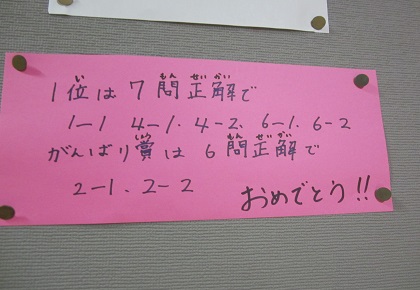 1位は7問正解で
1-1 4-1、4-2、6-1、6-2
がんばり賞は6問正解で
2-1、2-2
おめでとう!!